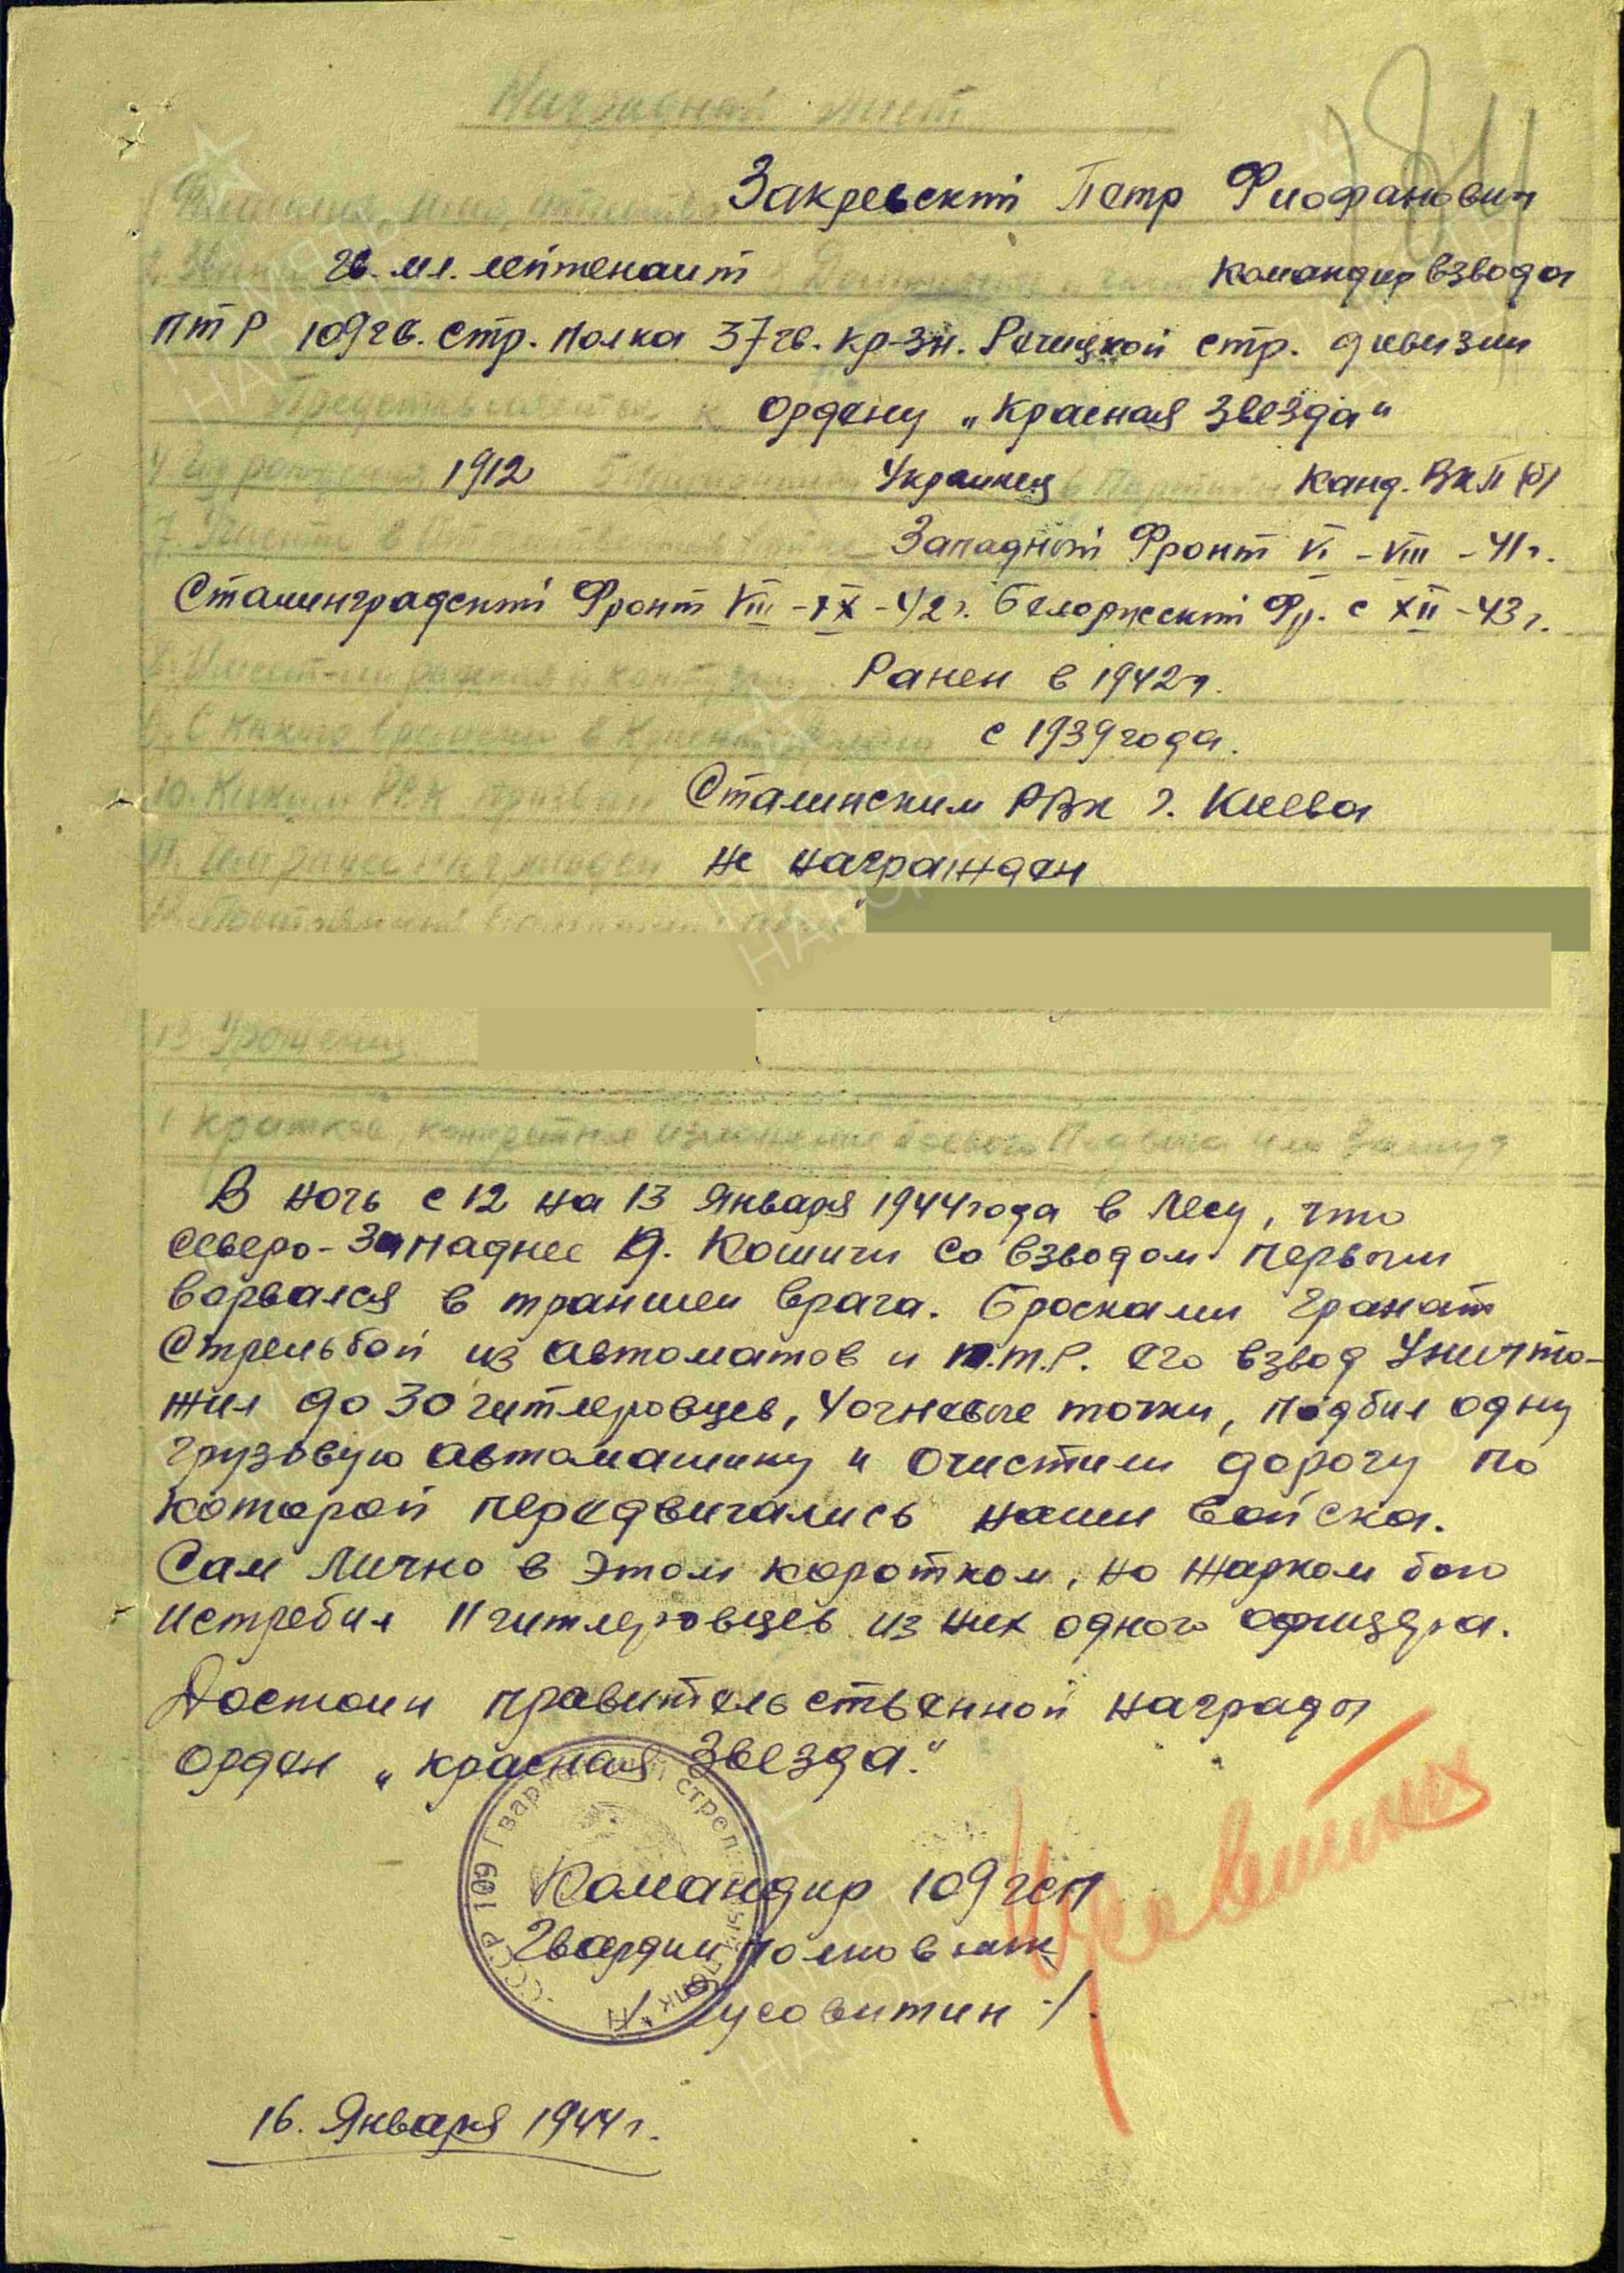 Наградной лист
1. Фамилия, имя, отчество Закревский Петр Фиофанович
2. Звание гв. мл. лейтенант 3. Должность, часть командир взвода
ПТР 109 гв. стр. полка 37 гв. кр-зн. Речицкой стр. дивизии
Представляется к ордену „Красная Звезда"
4. Год рождения 1912 5. Украинец 6. Партийн. Канд. ВКП(б)
7. Участие в Западный Фронт VI – VIII – 41 г.
Сталинградский Фронт VIII – IX – 42 г. Белоруссский Фр. с XII – 43 г.
8. Имеет ли ранения и контузии Ранен в 1942 г.
9. С какого времени в Красной Армии с 1939 года.
10. Каким РВК призван Сталинским РВК г. Киева
11. Чем ранее награжден Не награжден
12. Постоянный домашний адрес
13. Уроженец
1 Краткое, конкретное изложение боевого подвига или заслуг
В ночь с 12 на 13 Января 1944 года в лесу, что
северо-западнее д. Кошичи со взводом первым
ворвался в траншеи врага. Бросками гранат
Стрельбой из автоматов и П.Т.Р. его взвод Уничто-
жил до 30 гитлеровцев, 4 огневые точки, подбил одну
грузовую автомашину и очистили дорогу по
которой передвигались наши войска.
Сам Лично в этом коротком, но жарком бою
истребил 11 гитлеровцев из них одного офицера.
Достоин правительственной награды
орден „Красная Звезда."
Командир 109 гсп
Гвардии полковник
/ Лусовитин /.
16. Января 1944 г.
СССР 109 Гвардейский стрелковый полк
184
ПАМЯТЬ НАРОДА